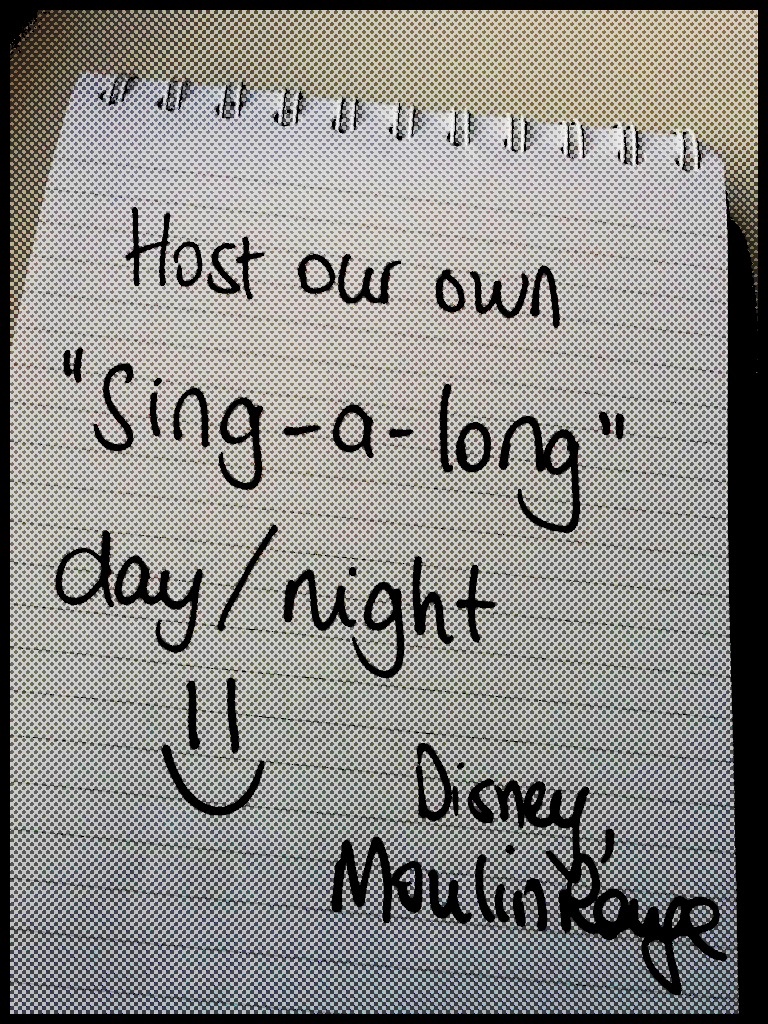 Host our own
"Sing-a-long"
day/night
Disney,
Moulin Rouge